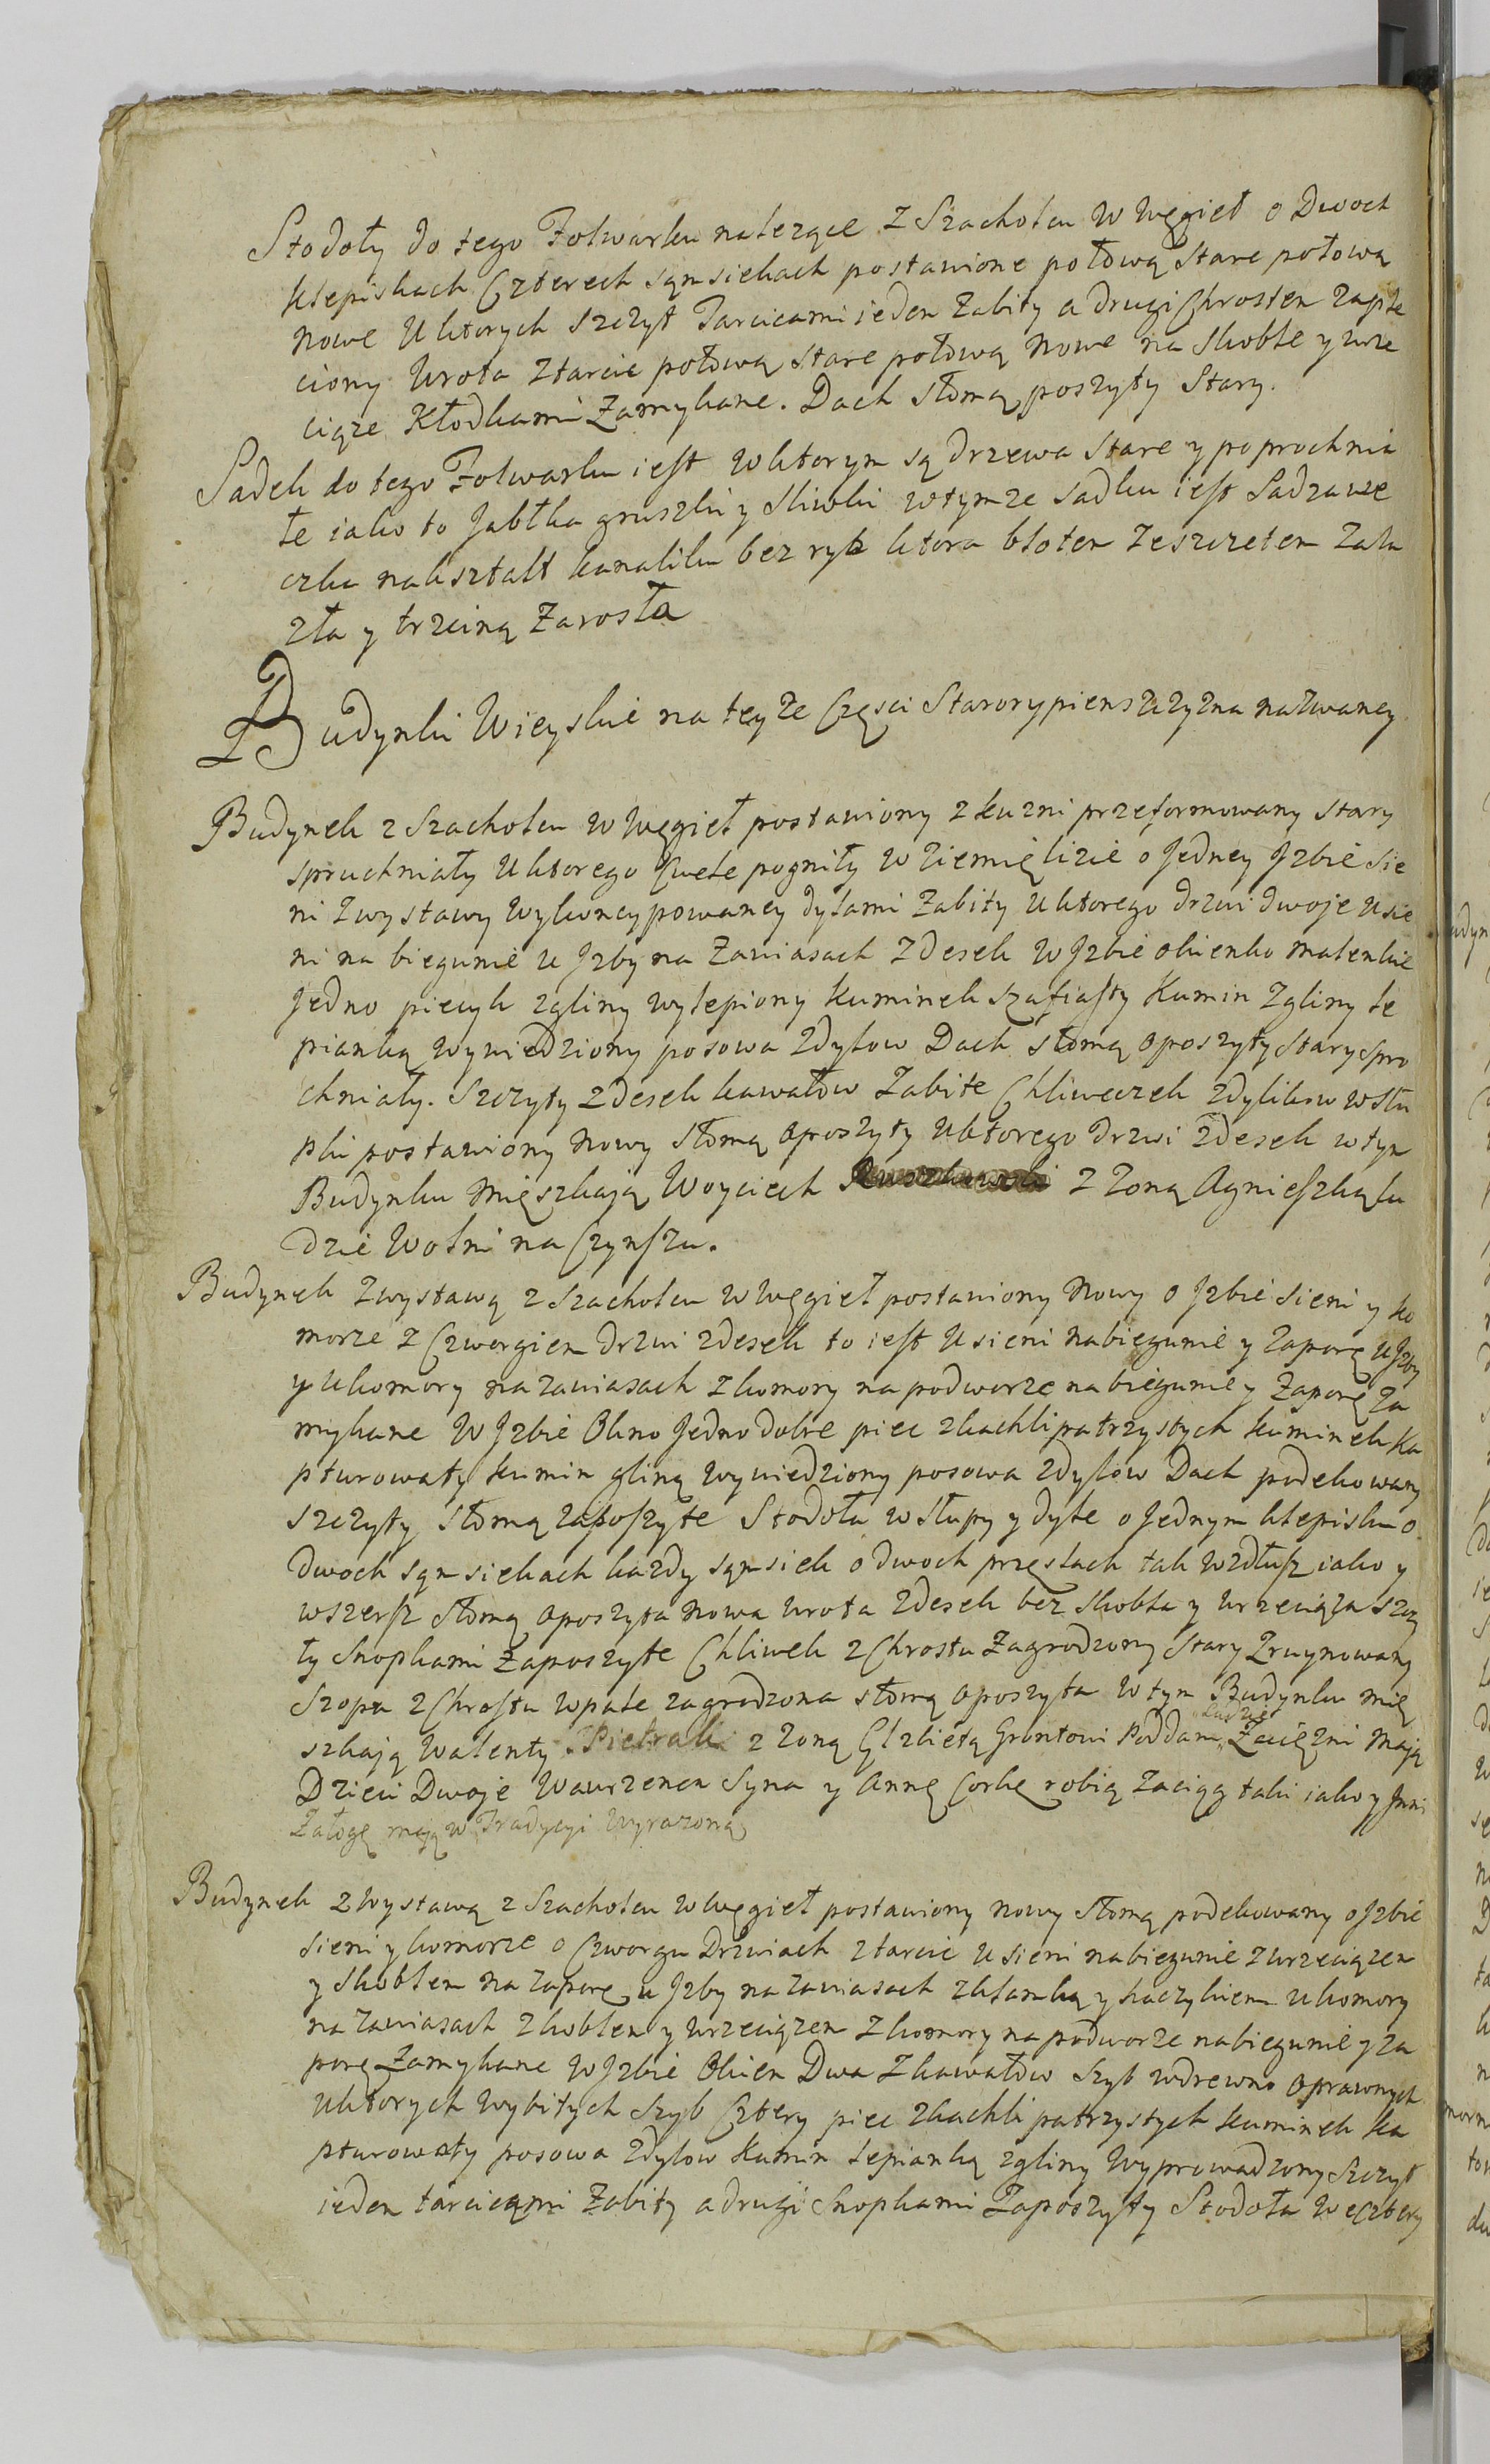 Stodoły do tego Folwarku nalezące z Szacholcu w Węgieł o Dwoch
klepiskach Czterech sąmsiekach postawione połową stare połową
nowe u ktorych szczyt Tarcicami ieden Zabity a drugi Chrostem zaple
ciony Wrota z tarcic połową stare połową nowe na skoble y wrze
ciąze Kłodkami Zamykane. Dach słomą poszyty Stary.
Sadek do tego Folwarku iest w ktorym są drzewa Stare y poprochnia
łe iako to Jabłka gruszki y sliwki w tymze sadku iest Sadzawe
czka na kształt kanaliku bez ryb ktora błotem ze szczetem zala
zła y trzciną Zarosła
Budynki Wieyskie na teyze Częsci Starorypienszczyzna nazwaney
Budynek z Szacholcu w Węgieł postawiony z kuzni przeformowany stary
spruchniały u ktorego Cwele pogniły w ziemię lizie o Jedney Jzbie sie
ni z wystawy wykoncypowaney dylami zabity u ktorego drzwi dwoje u sie
ni na biegunie u Jzby na Zawiasach z desek w Jzbie okienko malenkie
Jedno piecyk z gliny wylepiony kuminek szafiasty Kumin z gliny le
pianką wywiedziony posowa z dylow Dach słomą oposzyty stary spro
chniały. Szczyty z desek kawałow Zabite Chliweczek z dylikow w słu
pki postawiony nowy słomą oposzyty u ktorego drzwi z desek w tym
Budynku mięszkają Woyciech z Zoną Agnieszką lu
dzie Wolni na Czynszu.
Budynek z wystawą z Szacholcu w Węgieł postawiony nowy o Jzbie sieni y ko
morze z Czworgiem drzwi z desek to iest u sieni na biegunie y zaporę u Jzby
y u komory na zawiasach z komory na podworze na biegunie y Zaporę za
mykane w Jzbie Okno Jedno dobre piec z kachli patrzystych kuminek ka
pturowaty kumin gliną wywiedziony posowa z dylow Dach podekowany
szczyty słomą zaposzyte Stodoła w słupy y dyle o Jednym klepisku o
dwoch sąmsiekach kazdy sąmsiek o dwoch przęsłach tak wzdłusz iako y
wszersz słomą oposzyta nowa wrota z desek bez skobla y wrzeciąza szczy
ty snopkami zaposzyte Chliwek z Chrostu Zagrodzony Stary Zruynowany
Szopa z Chrostu w pale zagrodzona słomą oposzyta w tym Budynku mię
szkają Walenty Pietrak z zoną Elzbietą Gruntowi Poddani Ludzie Zaciężni mają
Dzieci Dwoje Wawrzenca Syna y Annę Corkę robią Zaciąg taki iako y Jnni
Załogę mają w Tradycyi Wyrazoną
Budynek z Wystawą z Szacholcu w Węgieł postawiony nowy słomą podekowany o Jzbie
sieni y komorze o Czworgu Drzwiach z tarcic u sieni na biegunie z wrzeciązem
y skoblem na zaporę u Jzby na zawiasach z klamką y haczykiem u komory
na zawiasach z koblem y wrzeciązem z komory na podworze na biegunie y za
porę Zamykane w Jzbie Okien Dwa z kawałow Szyb w drewno oprawnych
u ktorych wybitych Szyb Cztery piec z kachli patrzystych kuminek ka
pturowaty posowa z dylow kumin lepianką z gliny Wyprowadzony Szczyt
ieden tarcicami Zabity a drugi snopkami Zaposzyty Stodoła we cztery